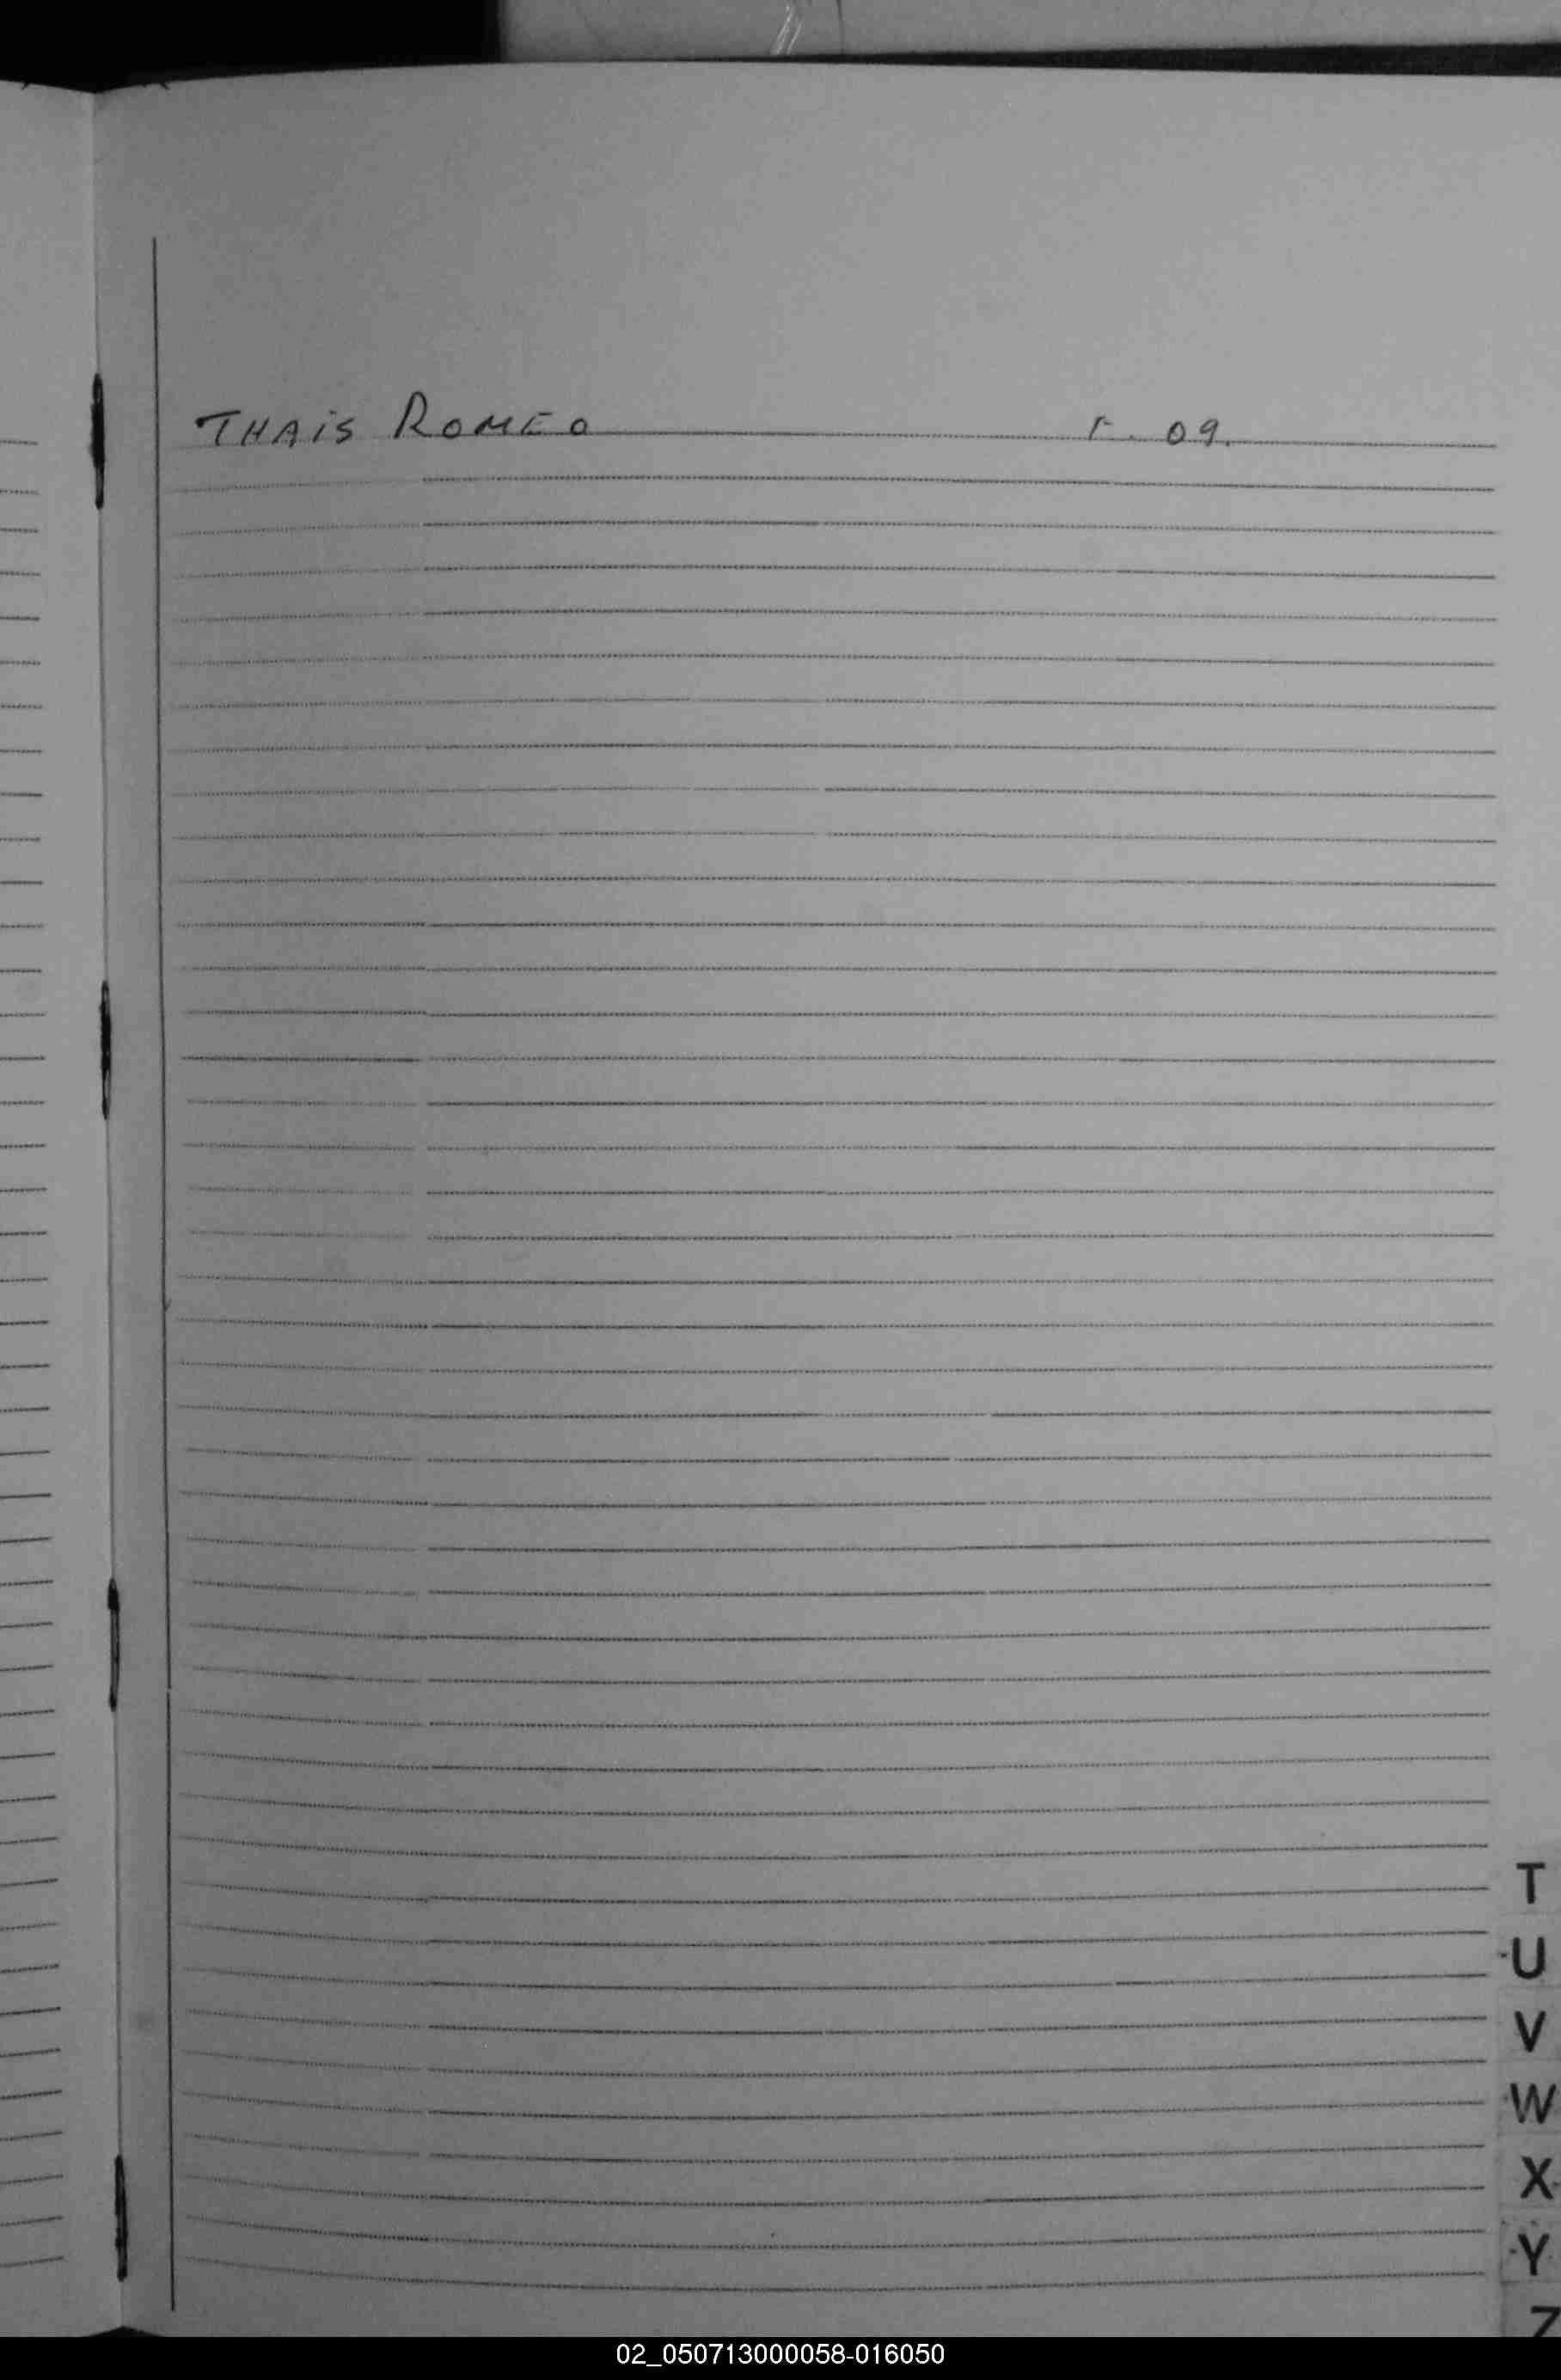 THAIS ROMEO F. 09.
T
U
V
W
X
Y
Z
02_050713000058-016050